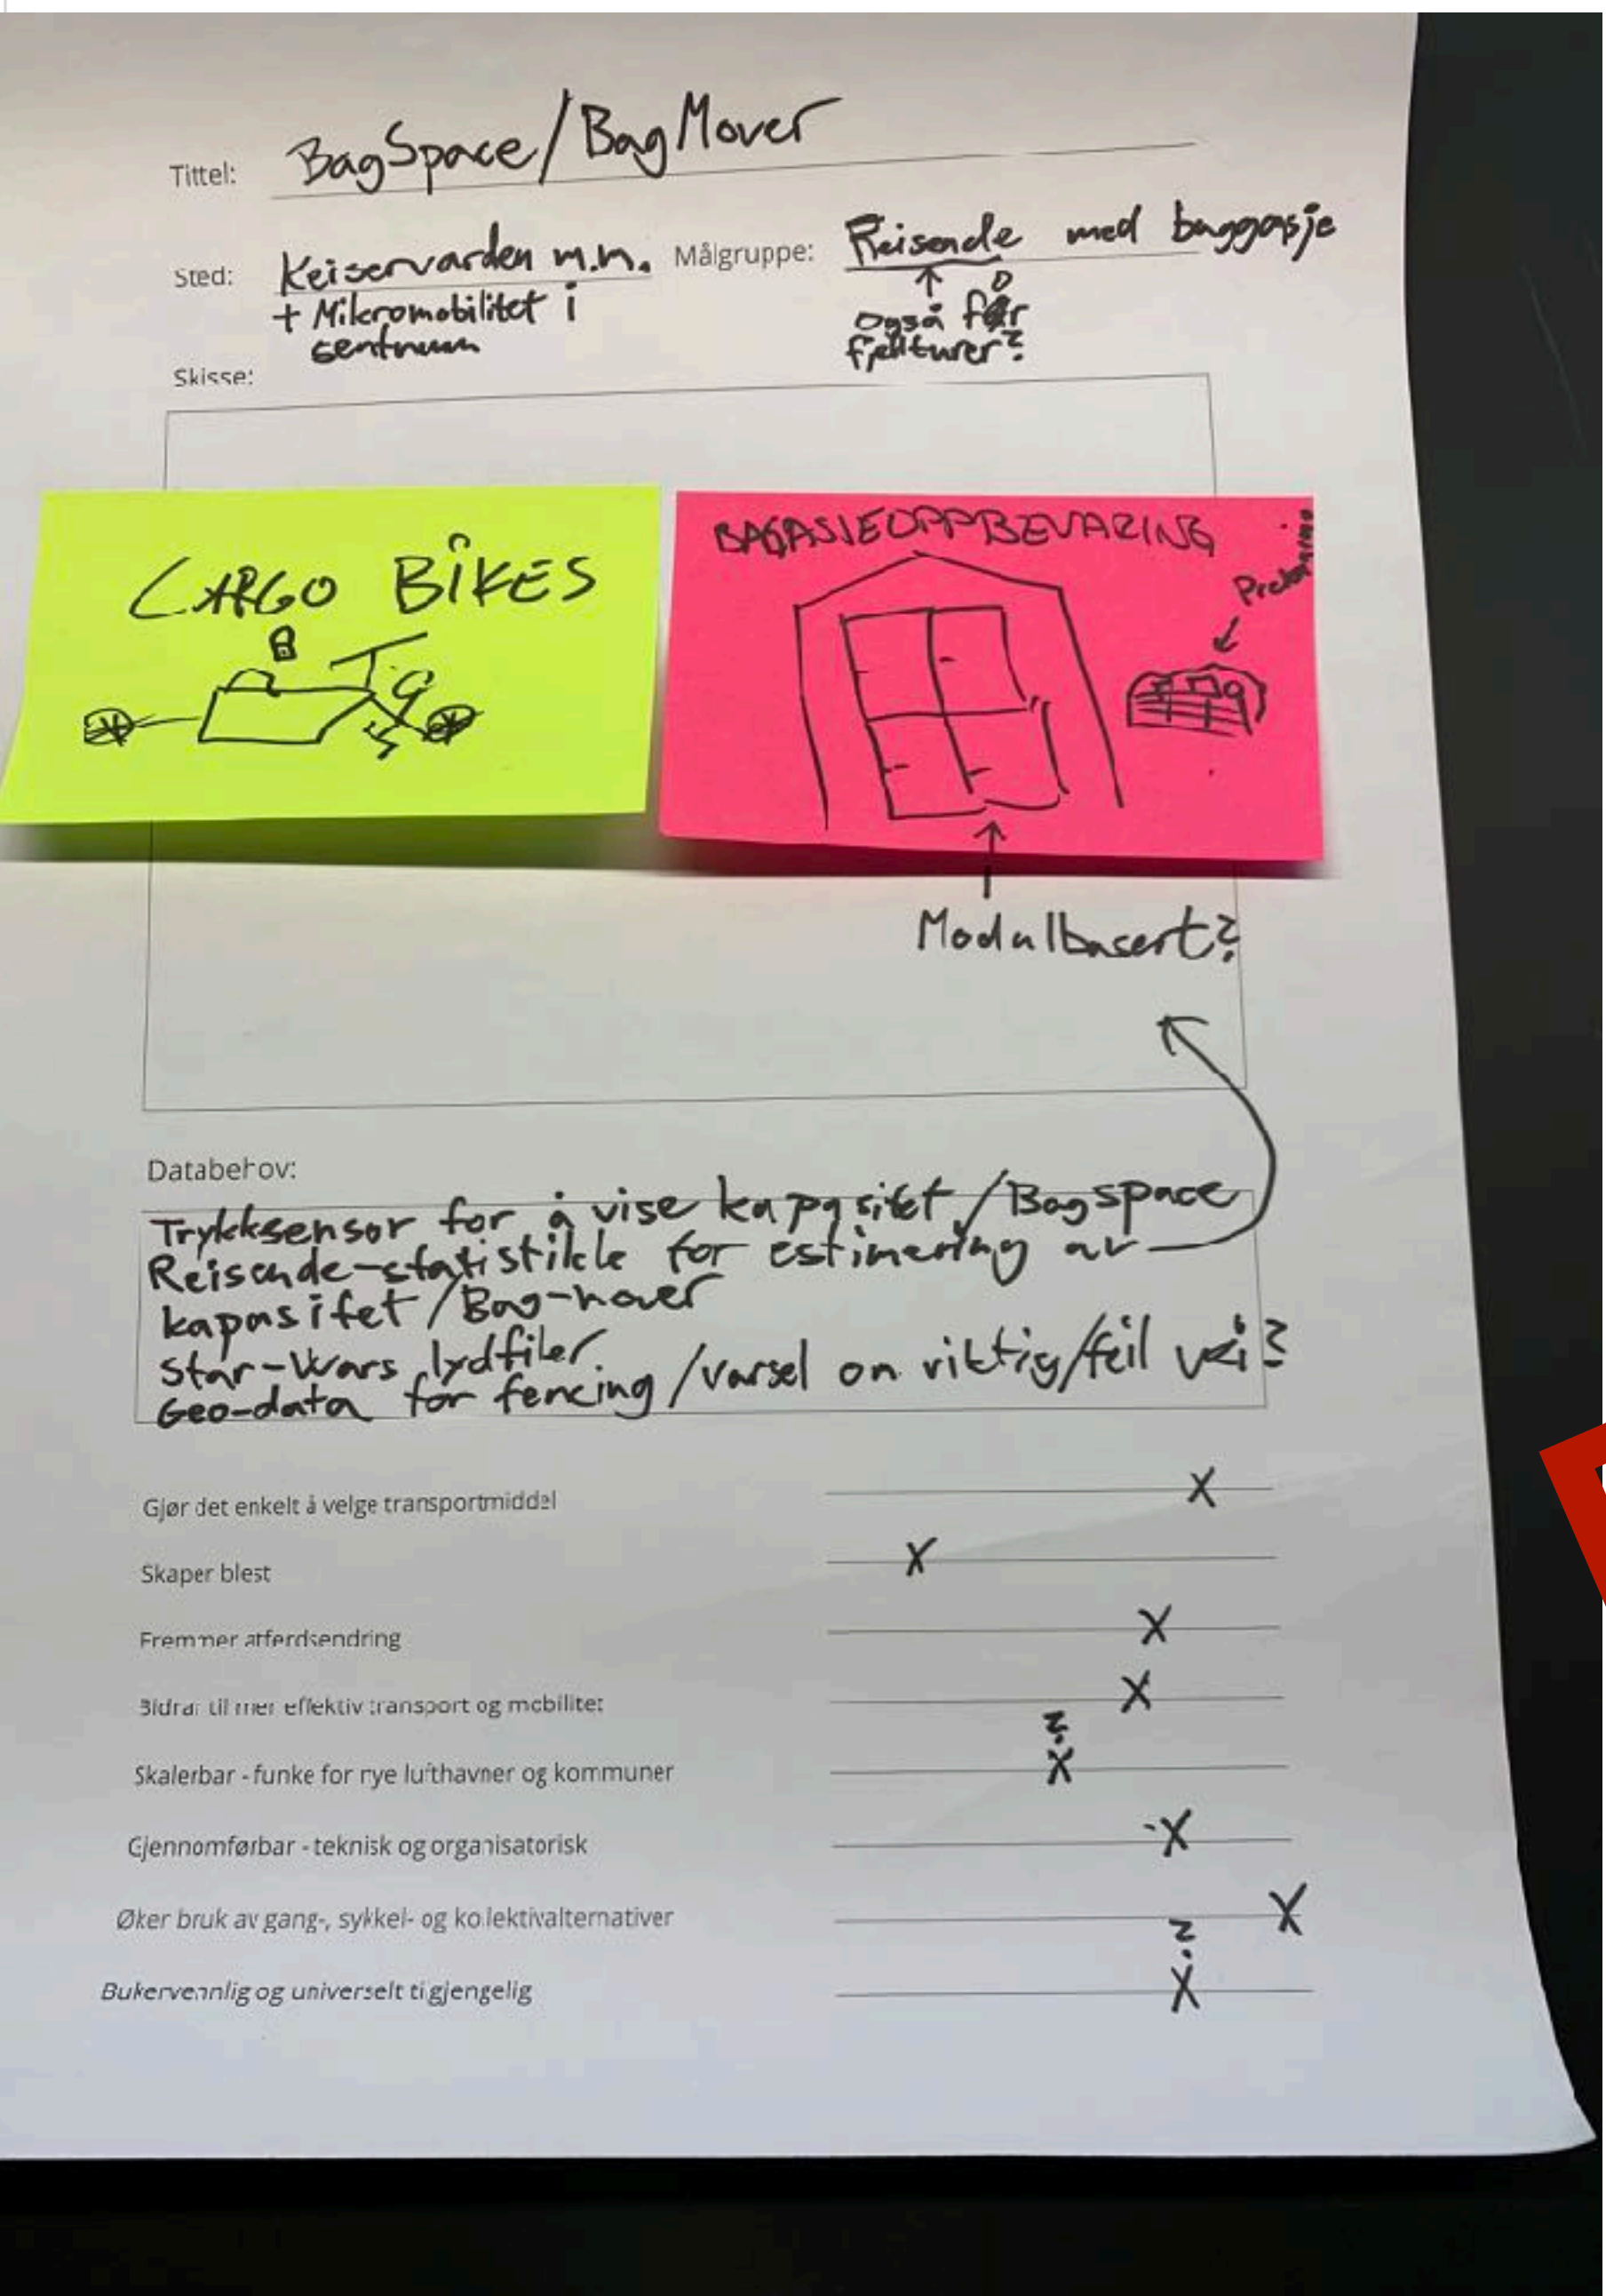 Tittel: BagSpace/BagMover
Sted: Keiservarden m.m. Målgruppe: Reisende med baggasje
+ Mikromobilitet i
sentrum
Også før
fjellturer?
Skisse:
CARGO BIKES
BAGASJEOPPBEVARING
Modulbasert?
Databehov:
Trykksensor for å vise kapasitet/Bagspace
Reisende-statistikk for estimering av
kapasitet/Bag-mover
Star-Wars lydfiler
Geo-data for fencing/varsel om riktig/feil vei?
Gjør det enkelt å velge transportmiddel X
Skaper blest X
Fremmer atferdsendring X
Bidrar til mer effektiv transport og mobilitet X
?
Skalerbar - funke for nye lufthavner og kommuner X
Gjennomførbar - teknisk og organisatorisk -X
Øker bruk av gang-, sykkel- og kollektivalternativer X
?
Bukervennlig og universelt tilgjengelig X